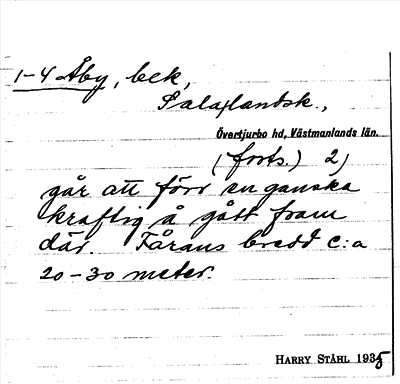 1-4 Åby, bek,
Sala landsk.,
Övertjurbo hd, Västmanlands län.
(forts.) 2)
går att förr en ganska
kraftig å gått fram
där. Fårans bredd c:a
20-30 meter.
HARRY STÅHL 1935